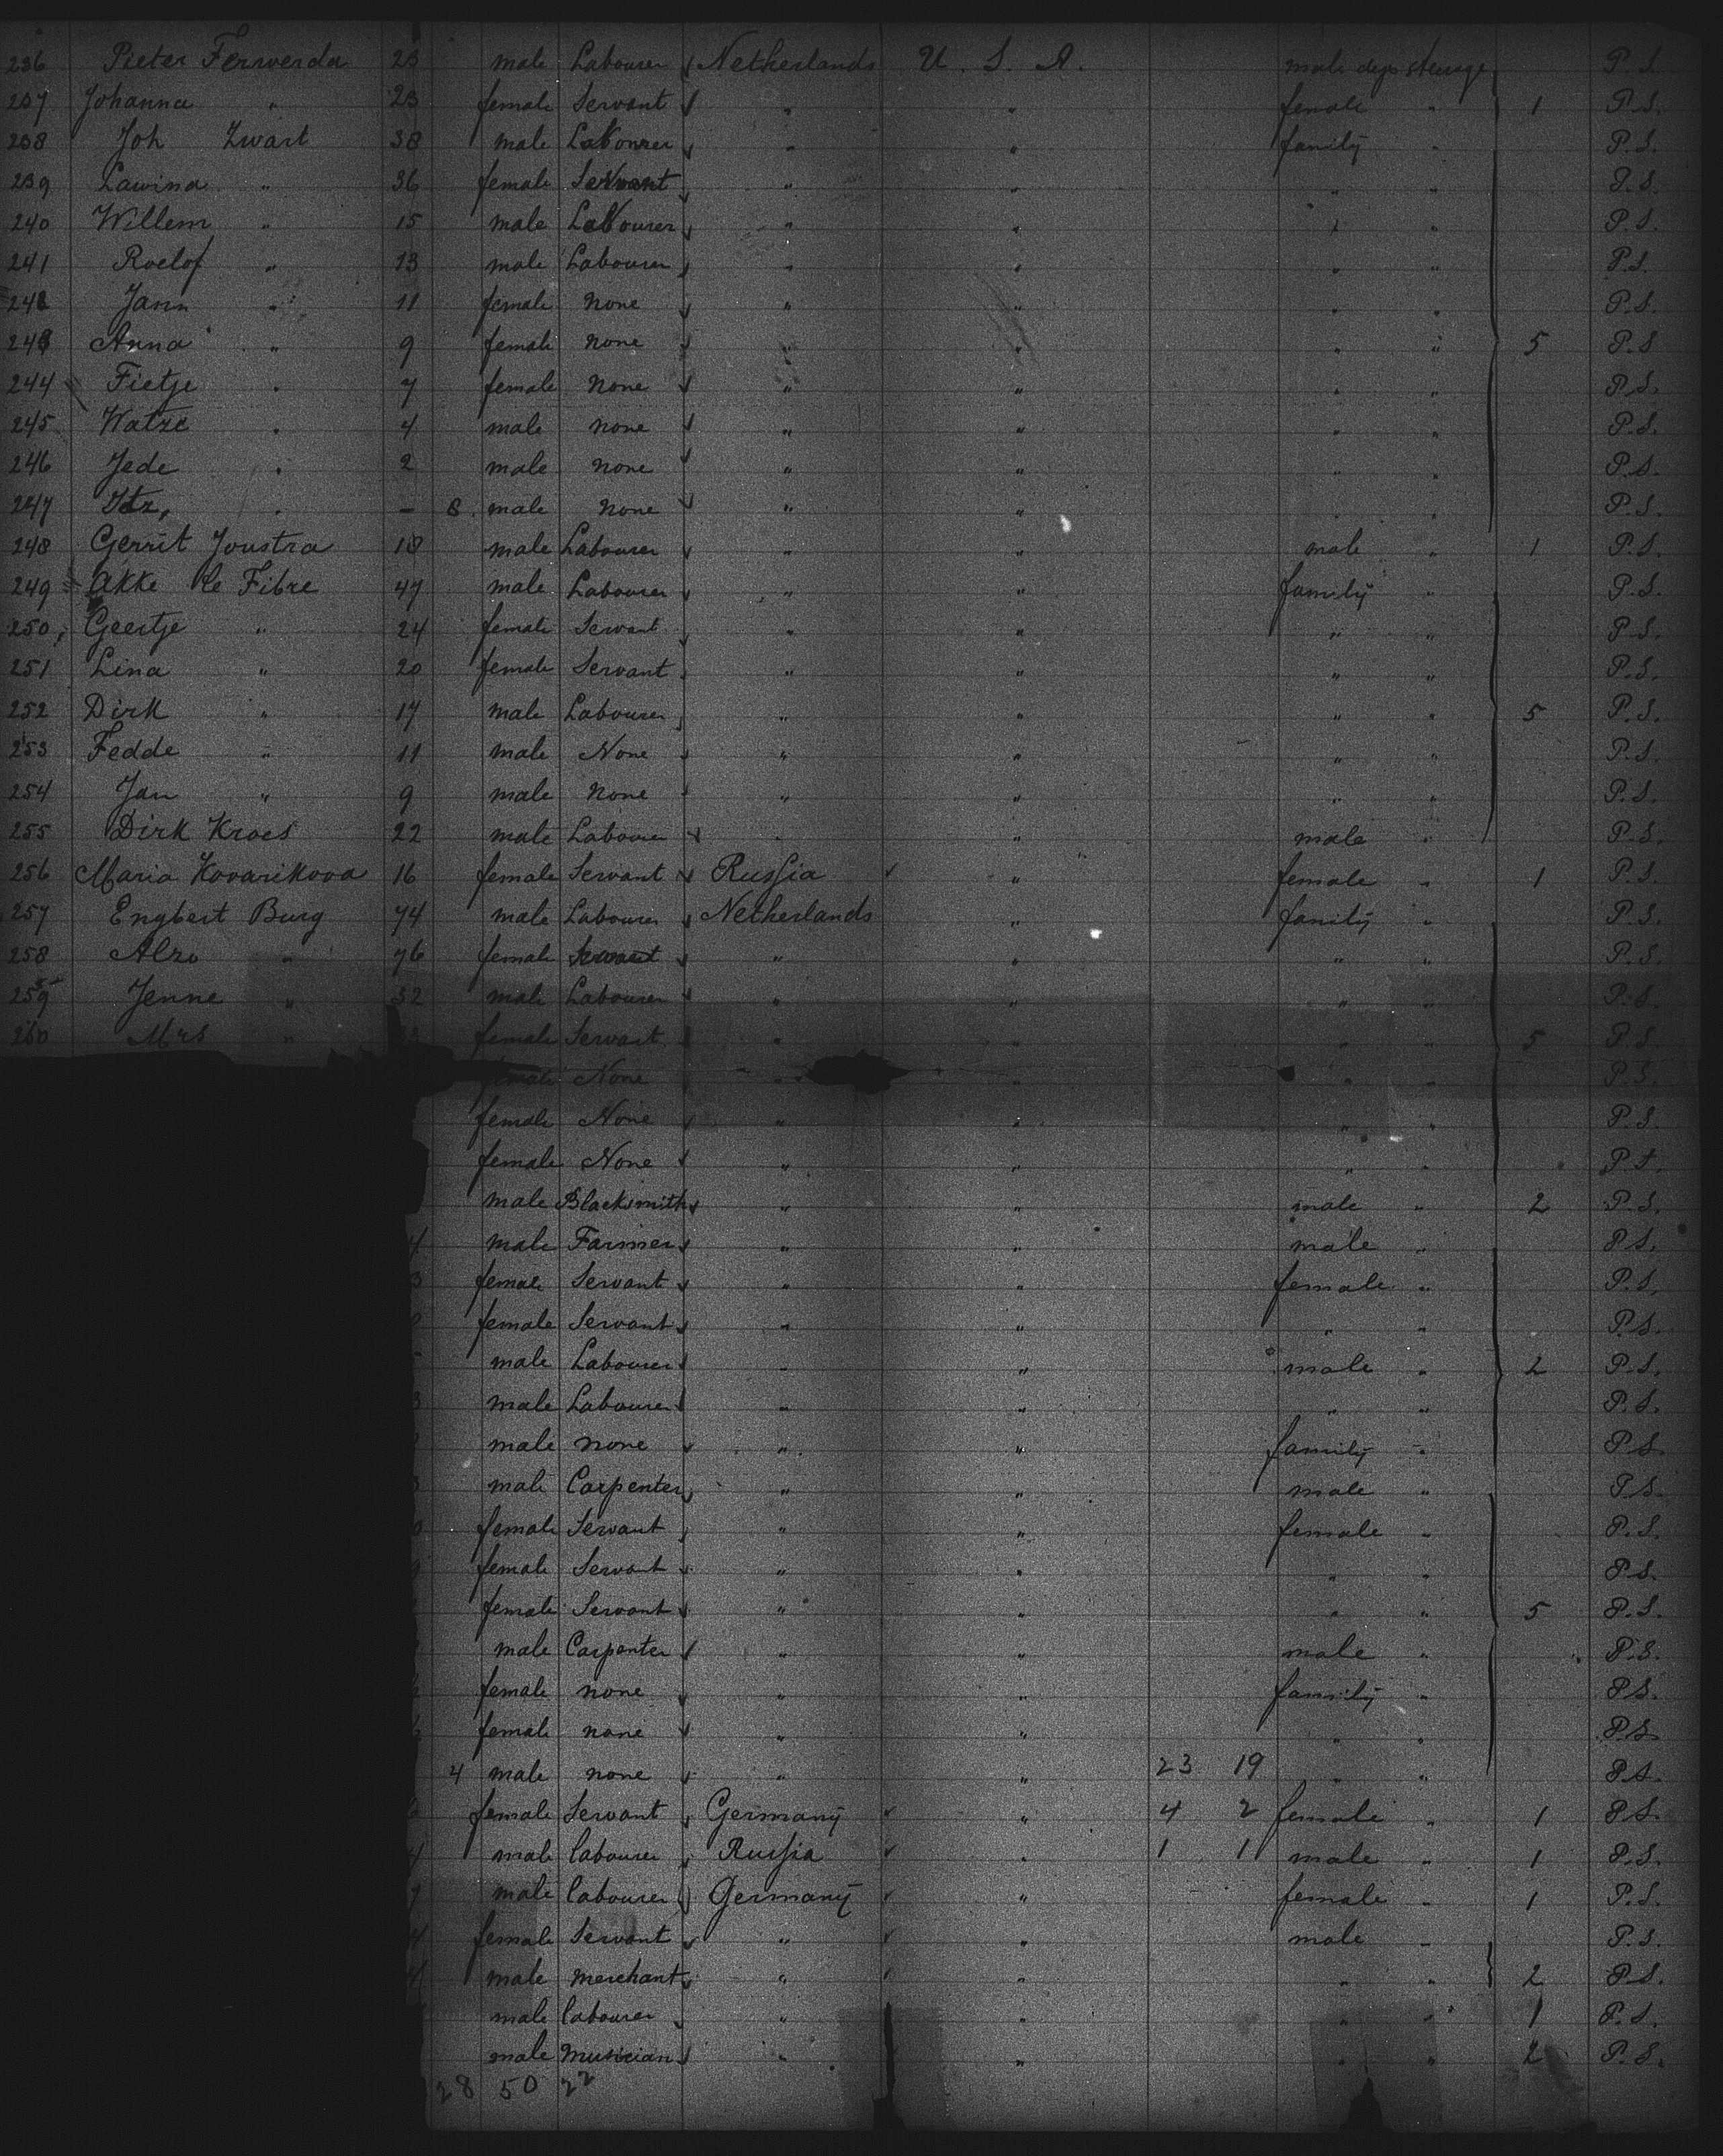 236 Pieter Ferwerda 23 male Labourer Netherlands U. S. A. male dep steerage P. S.
237 Johanna " 23 female Servant " " female " 1 P. S.
238 Joh Zwart 38 male Labourer " " family " P. S.
239 Lawina " 36 female Servant " " " " P. S.
240 Willem " 15 male Labourer " " " " P. S.
241 Roelof " 13 male Labourer " " " " P. S.
242 Jann " 11 female none " " " " P. S.
243 Anna " 9 female none " " " " 5 P. S
244 Fietje " 7 female none " " " " P. S.
245 Watze " 4 male none " " " " P. S.
246 Jede " 2 male none " " " " P. S.
247 " – 8 male none " " " " P. S.
248 Gerrit Joustra 18 male Labourer " " male " 1 P. S.
249 Akke de Fibre 47 male Labourer " " family " P. S.
250 Geertje " 24 female Servant " " " " P. S.
251 Lina " 20 female Servant " " " " P. S.
252 Dirk " 17 male Labourer " " " " 5 P. S.
253 Fedde " 11 male None " " " " P. S.
254 Jan " 9 male none " " " " P. S.
255 Dirk Kroes 22 male Labourer " " male " P. S.
256 Maria Kovarikova 16 female Servant Russia " female " 1 P. S.
257 Engbert Burg 74 male Labourer Netherlands " family " P. S.
258 Alzo " 76 female Servant " " " " P. S.
259 Jenne " 32 male Labourer " " " " P. S.
260 Mrs " female Servant " " " " 5 P. S.
female None " " " " P. S.
female None " " " " P. S.
female None " " " " P. S.
male Blacksmith " " male " 2 P. S.
4 male Farmer " " male " P. S.
3 female Servant " " female " P. S.
female Servant " " " " P. S.
male Labourer " " male " 2 P. S.
3 male Labourer " " " " P. S.
male none " " family " P. S.
male Carpenter " " male " P. S.
0 female Servant " " female " P. S.
female Servant " " " " P. S.
female Servant " " " " 5 P. S.
male Carpenter " " male " P. S.
female none " " family " P. S.
female none " " " " P. S.
4 male none " " 23 19 " " P. S.
female Servant Germany " 4 2 female " 1 P. S.
4 male labourer Russia " 1 1 male " 1 P. S.
male labourer Germany " female " 1 P. S.
4 female Servant " " male " P. S.
4 male merchant " " " " 2 P. S.
male labourer " " " " 1 P. S.
male musician " " " " 2 P. S.
28 50 22